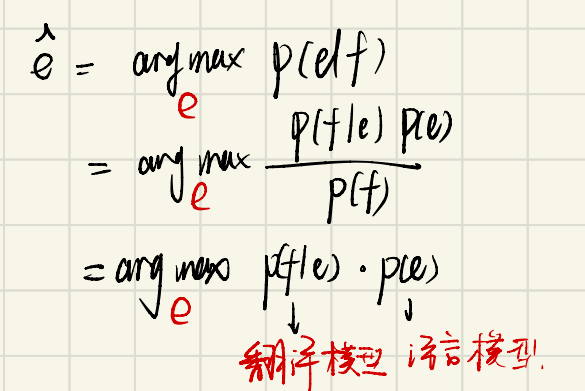 ê = arg max p(e|f)
e
= arg max p(f|e) p(e)
e p(f)
= arg max p(f|e) · p(e)
e ↓ ↓
翻译模型 语言模型.